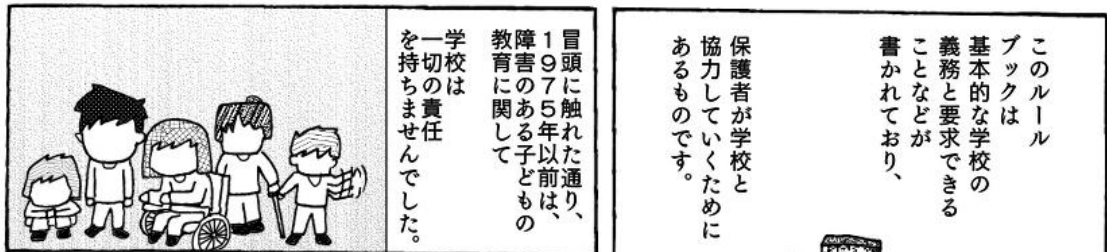 このルール
ブックは
基本的な学校の
義務と要求できる
ことなどが
書かれており、
保護者が学校と
協力していくために
あるものです。
冒頭に触れた通り、
1975年以前は、
障害のある子どもの
教育に関して
学校は
一切の責任
を持ちませんでした。